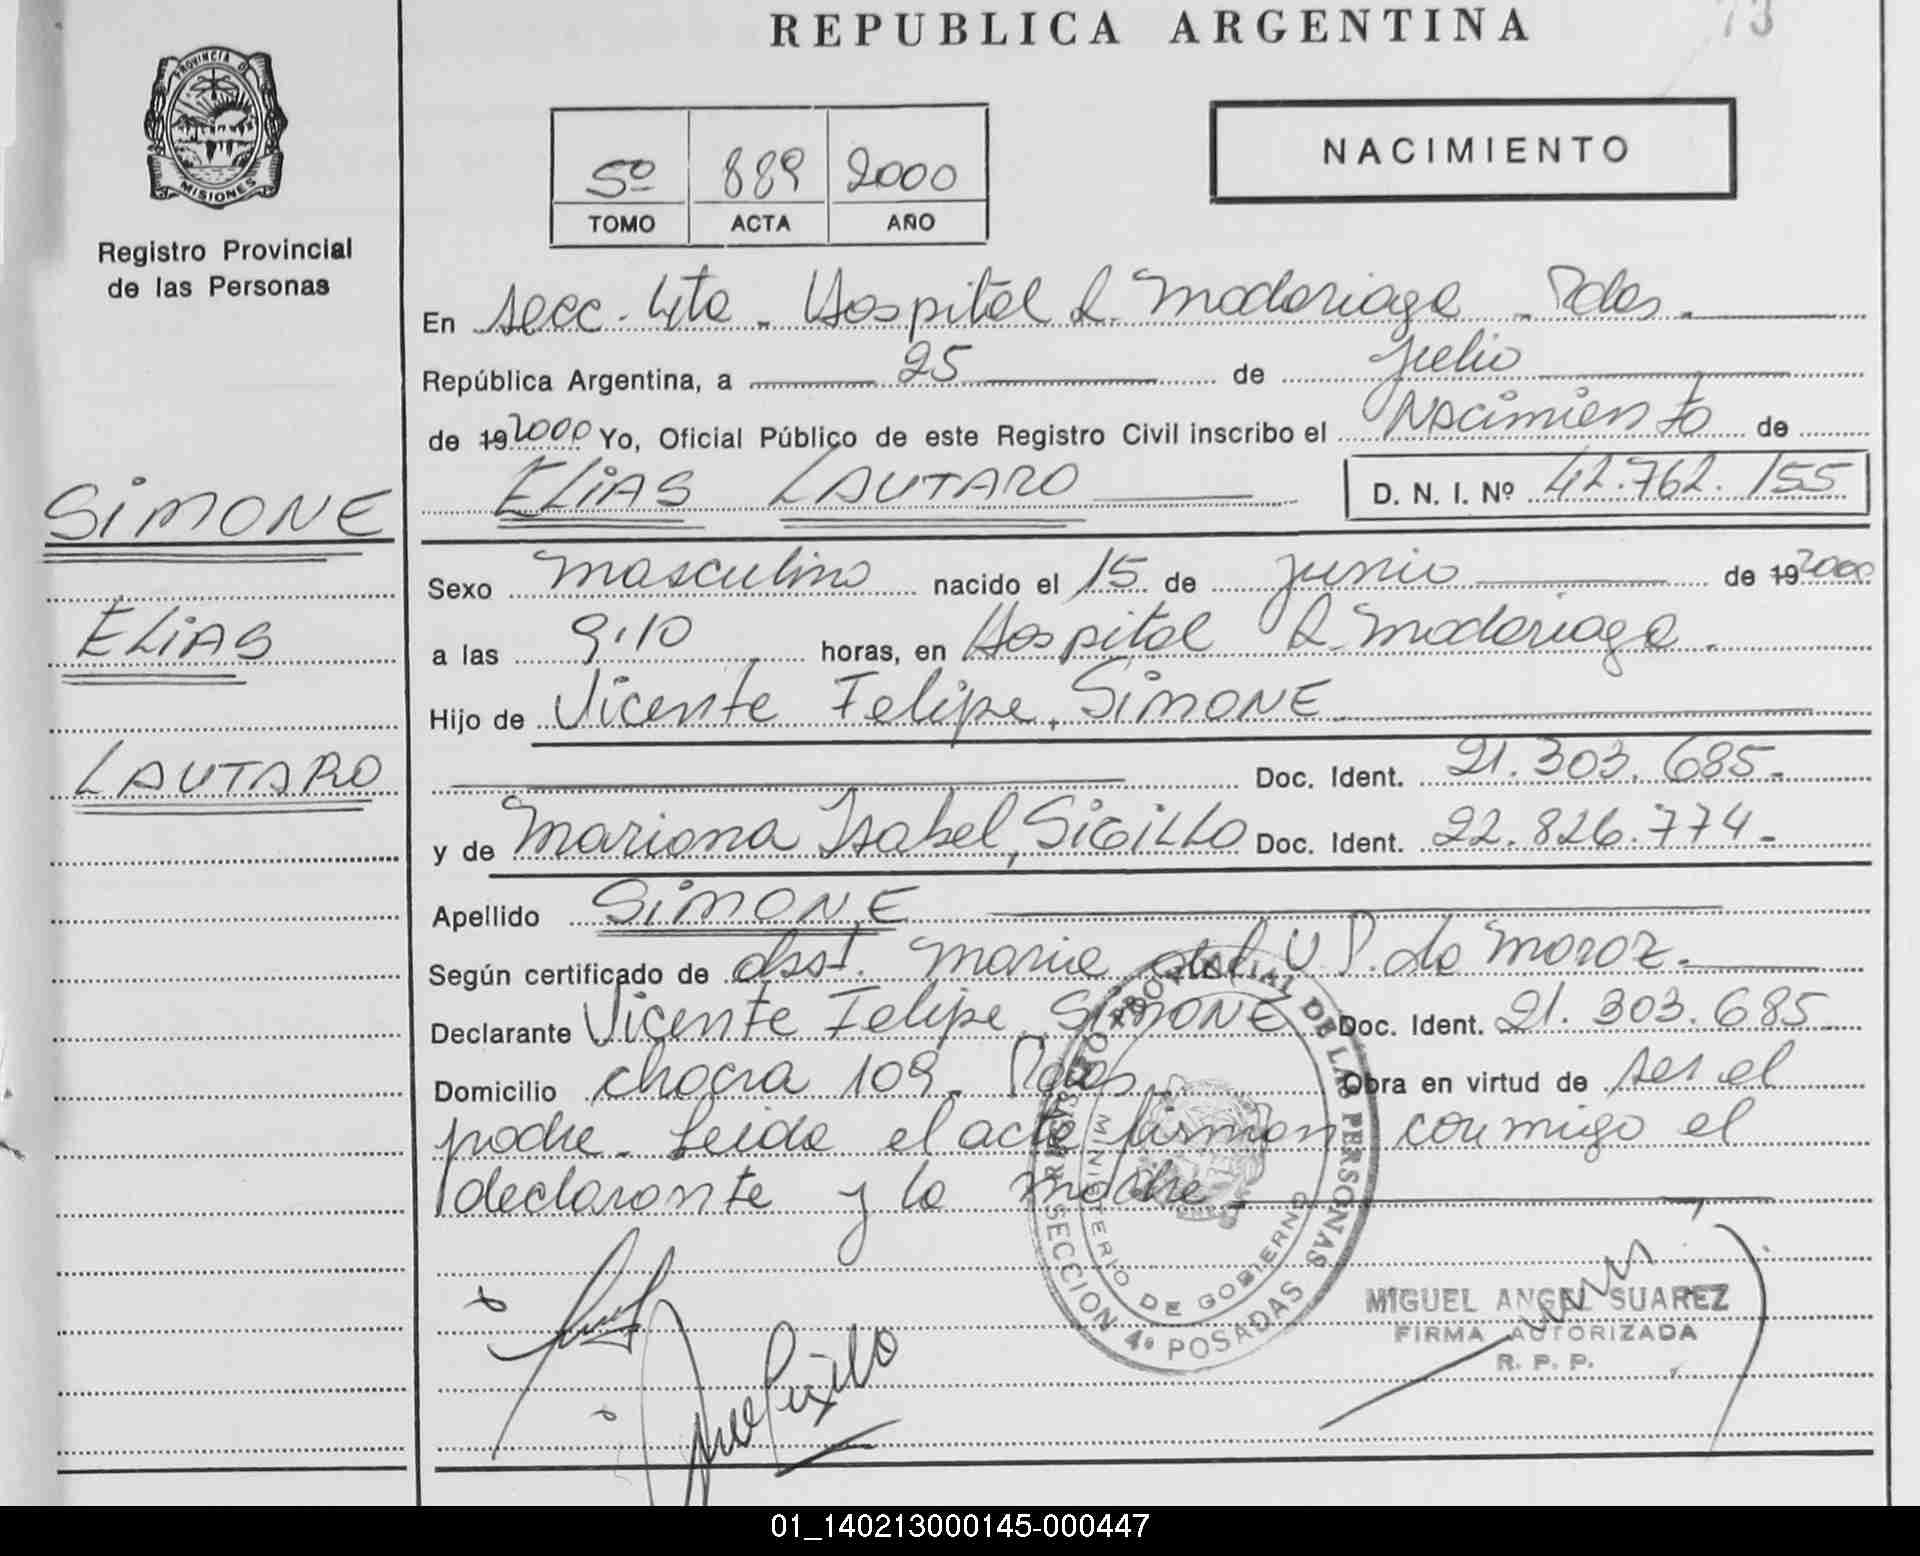 REPUBLICA ARGENTINA
73
PROVINCIA DE
MISIONES
Registro Provincial
de las Personas
5º 889 2000
TOMO ACTA AÑO
NACIMIENTO
En secc. 4ta. Hospital R. Madariaga. Pdas.
República Argentina, a 25 de julio
de 19 2000 Yo, Oficial Público de este Registro Civil inscribo el Nacimiento de
ELIAS LAUTARO D. N. I. Nº 42.762.155
SIMONE
ELIAS
LAUTARO
Sexo masculino nacido el 15 de junio de 19 2000
a las 9:10 horas, en Hospital R. Madariaga.
Hijo de Vicente Felipe, SIMONE
Doc. Ident. 21.303.685-
y de Mariana Isabel, SIGILLO Doc. Ident. 22.826.774-
Apellido SIMONE
Según certificado de obst. Maria del U P. de Moroz.
Declarante Vicente Felipe SIMONE Doc. Ident. 21.303.685
Domicilio chacra 109. Pdas. Obra en virtud de ser el
padre. Leida el acta firman conmigo el
declarante y la madre
REGISTRO PROVINCIAL DE LAS PERSONAS
MINISTERIO DE GOBIERNO
SECCION 4º POSADAS
MIGUEL ANGEL SUAREZ
FIRMA AUTORIZADA
R. P. P.
01_140213000145-000447